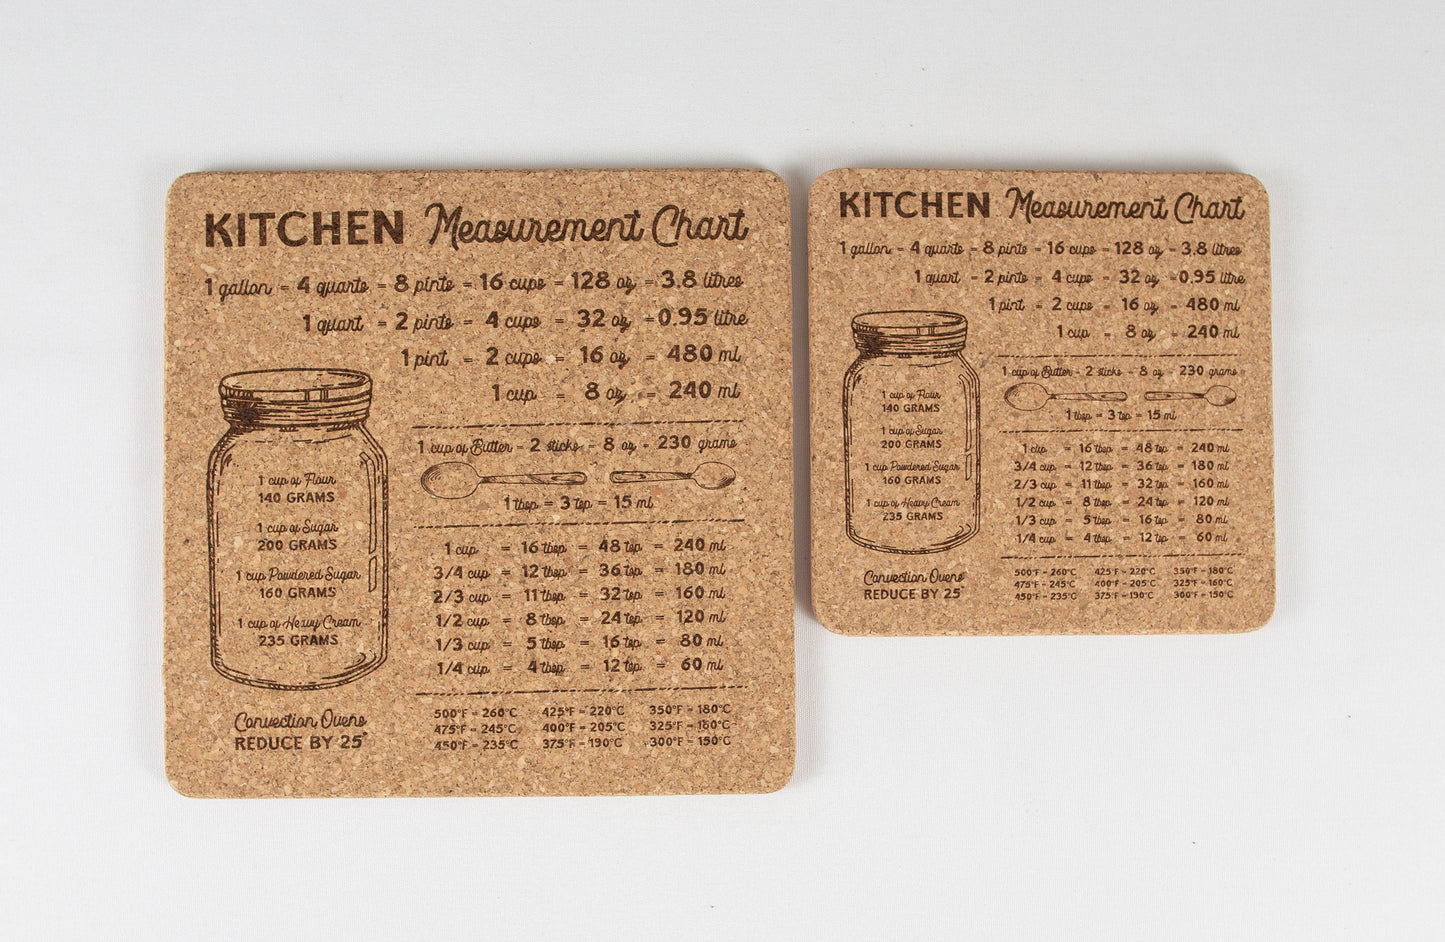 KITCHEN Measurement Chart
1 gallon = 4 quarts = 8 pints = 16 cups = 128 oz = 3.8 litres
1 quart = 2 pints = 4 cups = 32 oz = 0.95 litre
1 pint = 2 cups = 16 oz = 480 ml
1 cup = 8 oz = 240 ml
1 cup of Flour
140 GRAMS
1 cup of Sugar
200 GRAMS
1 cup Powdered Sugar
160 GRAMS
1 cup of Heavy Cream
235 GRAMS
Convection Ovens
REDUCE BY 25°
1 cup of Butter = 2 sticks = 8 oz = 230 grams
1 tbsp = 3 tsp = 15 ml
1 cup = 16 tbsp = 48 tsp = 240 ml
3/4 cup = 12 tbsp = 36 tsp = 180 ml
2/3 cup = 11 tbsp = 32 tsp = 160 ml
1/2 cup = 8 tbsp = 24 tsp = 120 ml
1/3 cup = 5 tbsp = 16 tsp = 80 ml
1/4 cup = 4 tbsp = 12 tsp = 60 ml
500°F = 260°C 425°F = 220°C 350°F = 180°C
475°F = 245°C 400°F = 205°C 325°F = 160°C
450°F = 235°C 375°F = 190°C 300°F = 150°C
KITCHEN Measurement Chart
1 gallon = 4 quarts = 8 pints = 16 cups = 128 oz = 3.8 litres
1 quart = 2 pints = 4 cups = 32 oz = 0.95 litre
1 pint = 2 cups = 16 oz = 480 ml
1 cup = 8 oz = 240 ml
1 cup of Flour
140 GRAMS
1 cup of Sugar
200 GRAMS
1 cup Powdered Sugar
160 GRAMS
1 cup of Heavy Cream
235 GRAMS
Convection Ovens
REDUCE BY 25°
1 cup of Butter = 2 sticks = 8 oz = 230 grams
1 tbsp = 3 tsp = 15 ml
1 cup = 16 tbsp = 48 tsp = 240 ml
3/4 cup = 12 tbsp = 36 tsp = 180 ml
2/3 cup = 11 tbsp = 32 tsp = 160 ml
1/2 cup = 8 tbsp = 24 tsp = 120 ml
1/3 cup = 5 tbsp = 16 tsp = 80 ml
1/4 cup = 4 tbsp = 12 tsp = 60 ml
500°F = 260°C 425°F = 220°C 350°F = 180°C
475°F = 245°C 400°F = 205°C 325°F = 160°C
450°F = 235°C 375°F = 190°C 300°F = 150°C